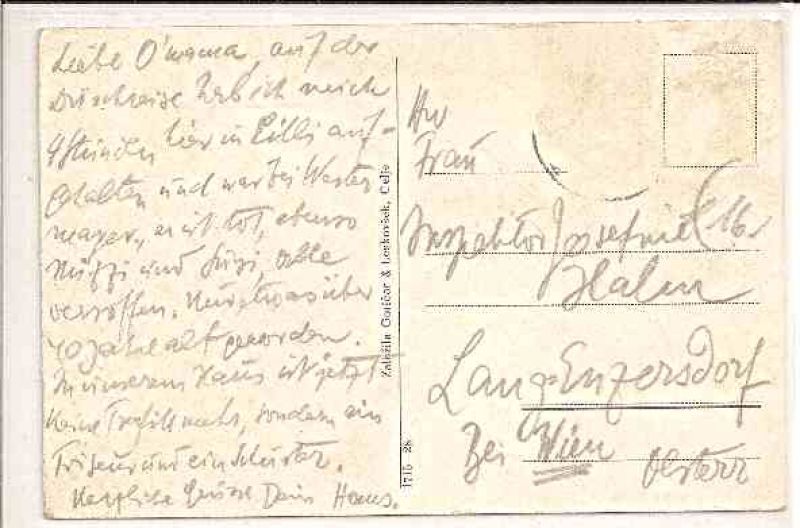 Liebe O'mama, auf der
Durchreise hab ich mich
4 Stunden hier in Cilli auf-
gehalten und war bei Wester
mayer, er ist tot, ebenso
und alle
versoffen. Nur etwas über
40 Jahre alt geworden.
In unserem Haus ist jetzt
keine Trafik mehr, sondern ein
Friseur und ein Schuster.
Herzliche Grüsse Dein Hans.
Založila Goričar & Leskovšek, Celje
1715 28
Frau
Inspektor Josefine
Lang-Enzersdorf
Bei Wien
Österr